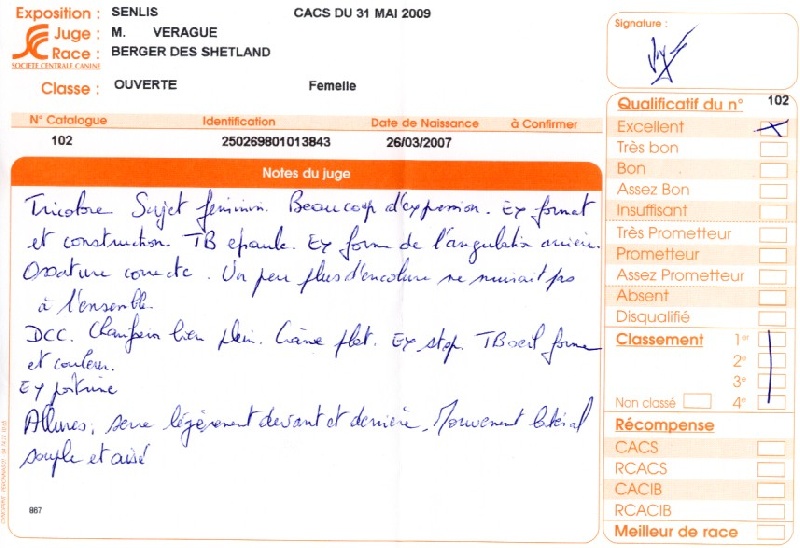 Exposition : SENLIS CACS DU 31 MAI 2009
Juge : M. VERAGUE
Race : BERGER DES SHETLAND
SOCIÉTÉ CENTRALE CANINE
Classe : OUVERTE Femelle
N° Catalogue Identification Date de Naissance à Confirmer
102 250269801013843 26/03/2007
Notes du juge
Tricolore Sujet féminin. Beaucoup d'expression. Ex format
et construction. TB epaule. Ex forme de l'angulation arrière.
Ossature correcte. Un peu plus d'encolure ne nuirait pas
à l'ensemble.
DCC. Chanfrein bien plein. Crâne plat. Ex stop. TB oeil forme
et couleur.
Ex poitrine
Allures : serre légèrement devant et derrière. Mouvement latéral
souple et aisé
867
Signature :
Qualificatif du n° 102
Excellent
Très bon
Bon
Assez Bon
Insuffisant
Très Prometteur
Prometteur
Assez Prometteur
Absent
Disqualifié
Classement 1er
2e
3e
Non classé 4e
Récompense
CACS
RCACS
CACIB
RCACIB
Meilleur de race